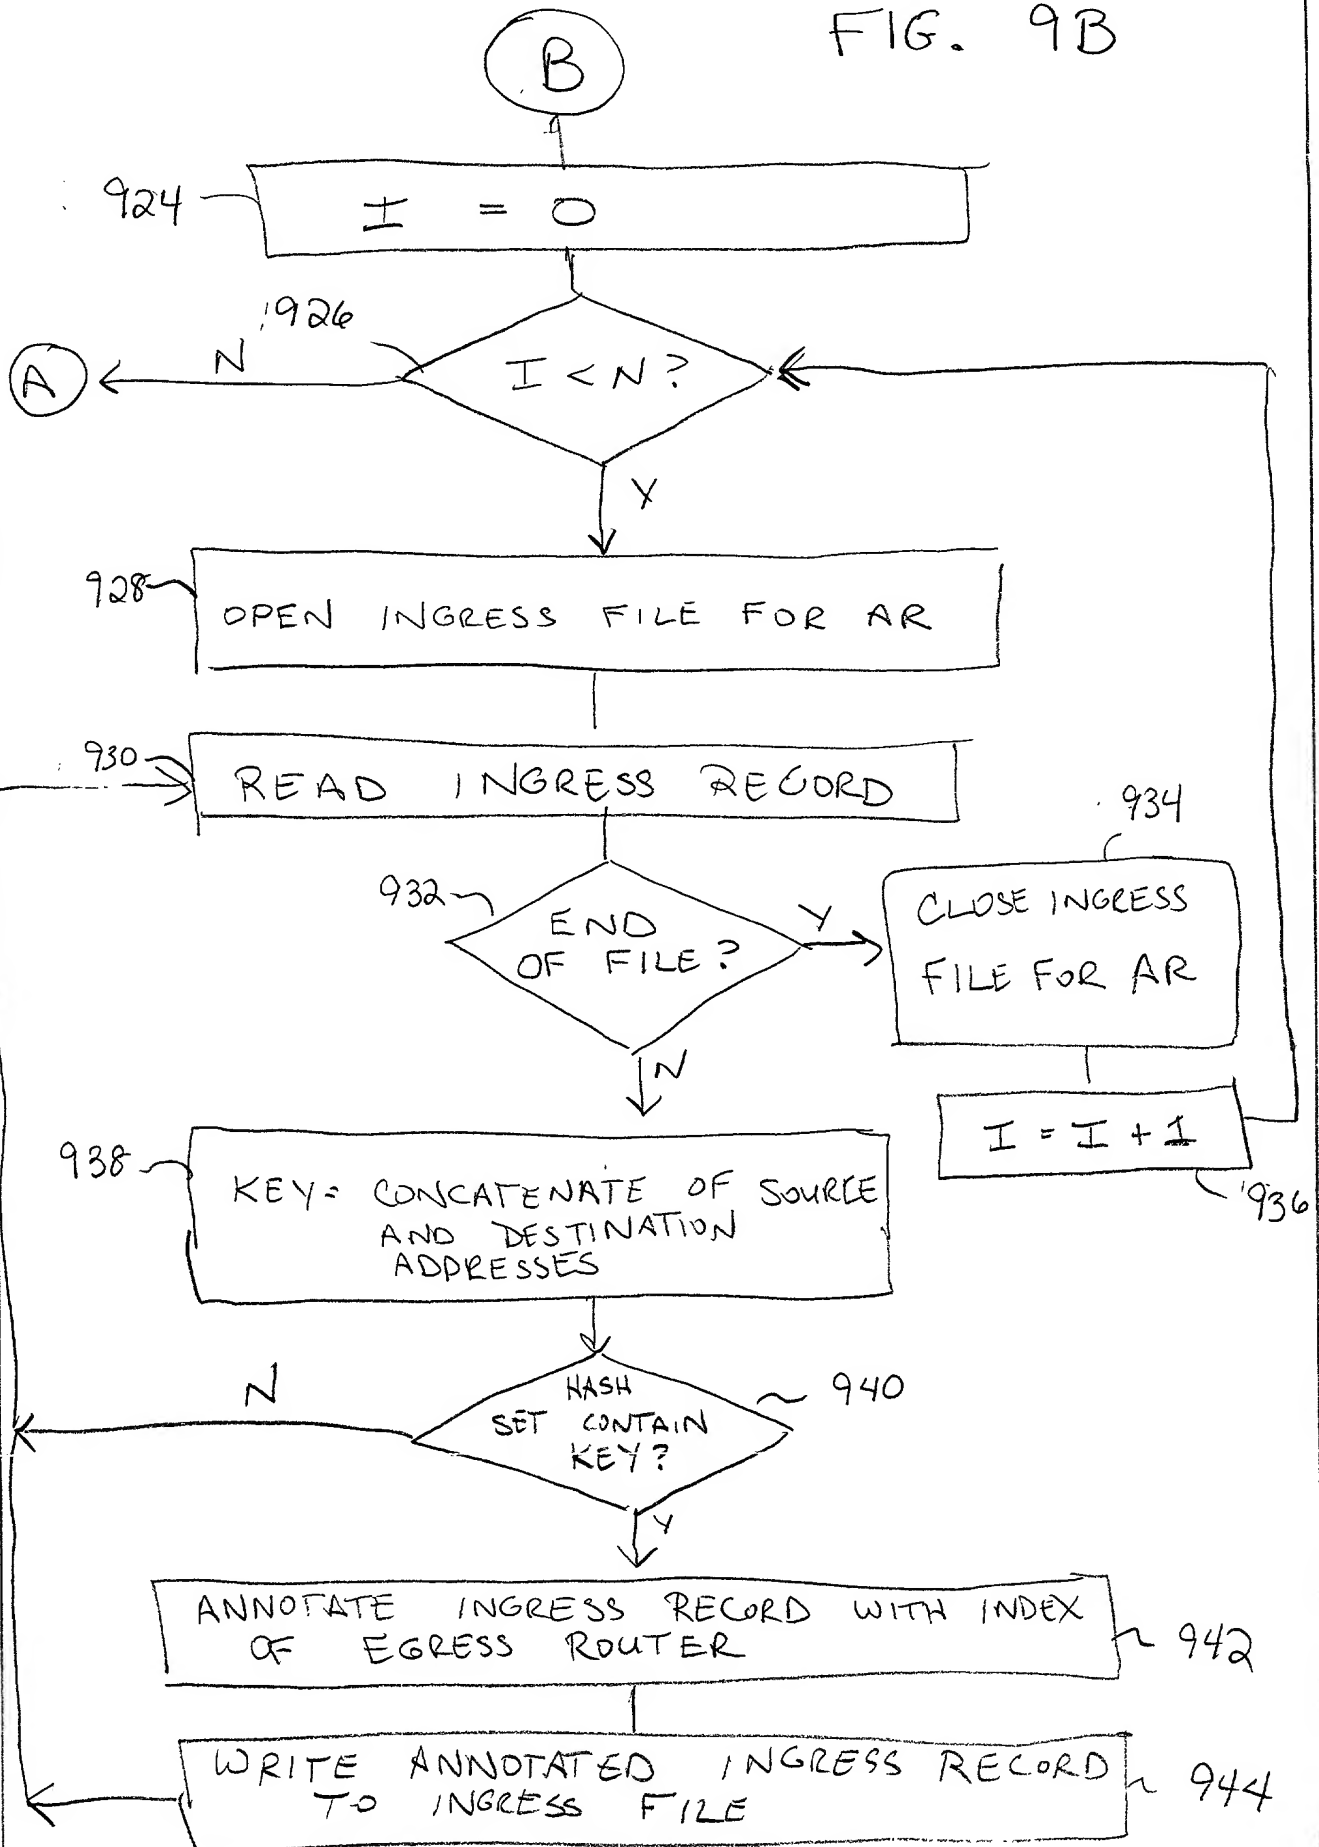 FIG. 9B
B
924
I = 0
926
N
I < N?
A
Y
928
OPEN INGRESS FILE FOR AR
930
READ INGRESS RECORD
934
932
END
OF FILE?
Y
CLOSE INGRESS
FILE FOR AR
N
I = I + 1
936
938
KEY= CONCATENATE OF SOURCE
AND DESTINATION
ADDRESSES
N
HASH
SET CONTAIN
KEY?
940
Y
ANNOTATE INGRESS RECORD WITH INDEX
OF EGRESS ROUTER
942
WRITE ANNOTATED INGRESS RECORD
TO INGRESS FILE
944